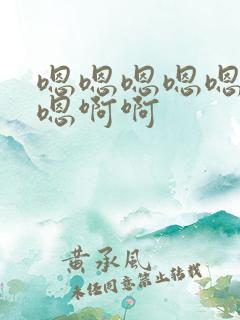 嗯嗯嗯嗯嗯
嗯啊啊
黄承风
未经同意禁止转载